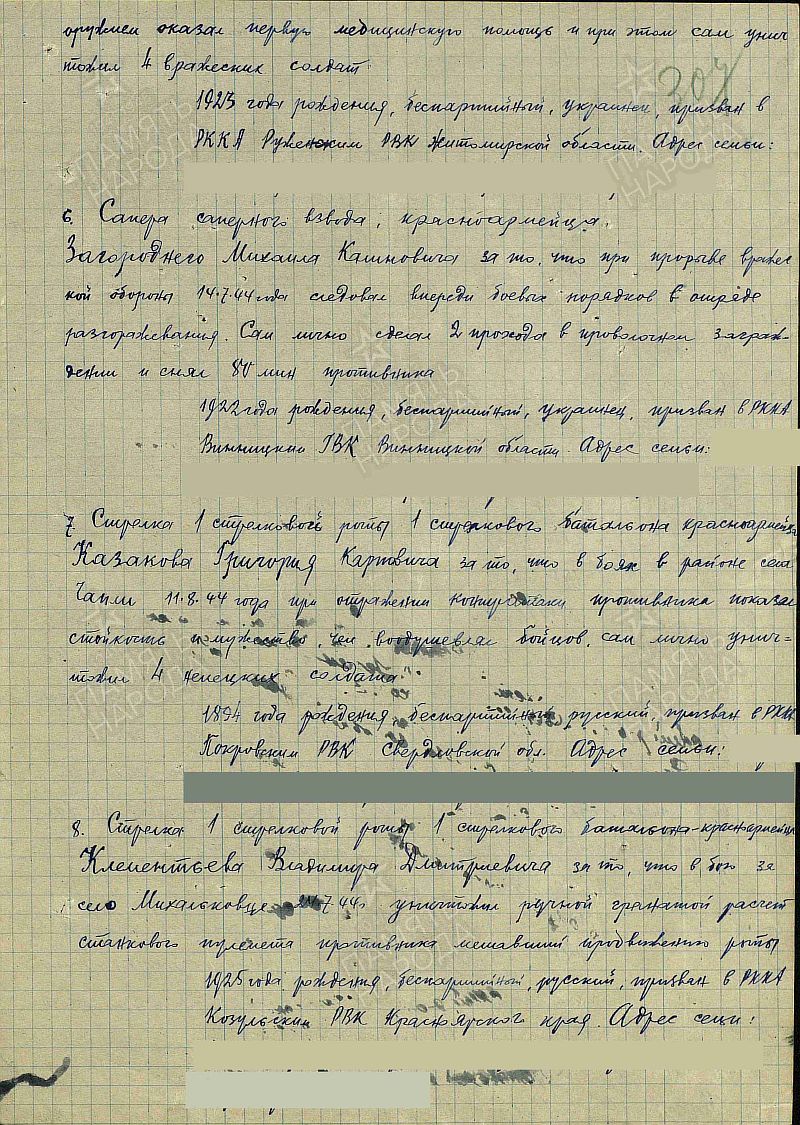 оружием оказал первую медицинскую помощь и при этом сам унич
тожил 4 вражеских солдат
309
1923 года рождения, беспартийный, украинец, призван в
РККА Руженским РВК Житомирской области. Адрес семьи:
6. Сапера саперного взвода, красноармейца,
Загороднего Михаила Калиновича за то, что при прорыве вражес
кой обороны 14.7.44 года следовал впереди боевых порядков в отряде
разгораживания. Сам лично сделал 2 прохода в проволочном заграж-
дении и снял 80 мин противника
1922 года рождения, беспартийный, украинец, призван в РККА
Винницким ГВК Винницкой области. Адрес семьи:
7. Стрелка 1 стрелковой роты 1 стрелкового батальона красноармейца
Казакова Григория Карповича за то, что в боях в районе села
Чапли 11.8.44 года при отражении контратаки противника показал
стойкость и мужество, чем воодушевлял бойцов, сам лично унич-
тожил 4 немецких солдата.
1894 года рождения, беспартийный русский, призван в РККА
Покровским РВК Свердловской обл. Адрес семьи:
8. Стрелка 1 стрелковой роты 1 стрелкового батальона-красноармейца
Клементьева Владимира Дмитриевича за то, что в бою за
село Михальковце 7.44г уничтожил ручной гранатой расчет
станкового пулемета противника мешавший продвижению роты
1925 года рождения, беспартийный, русский, призван в РККА
Козульским РВК Красноярского края. Адрес семи:
ПАМЯТЬ НАРОДА